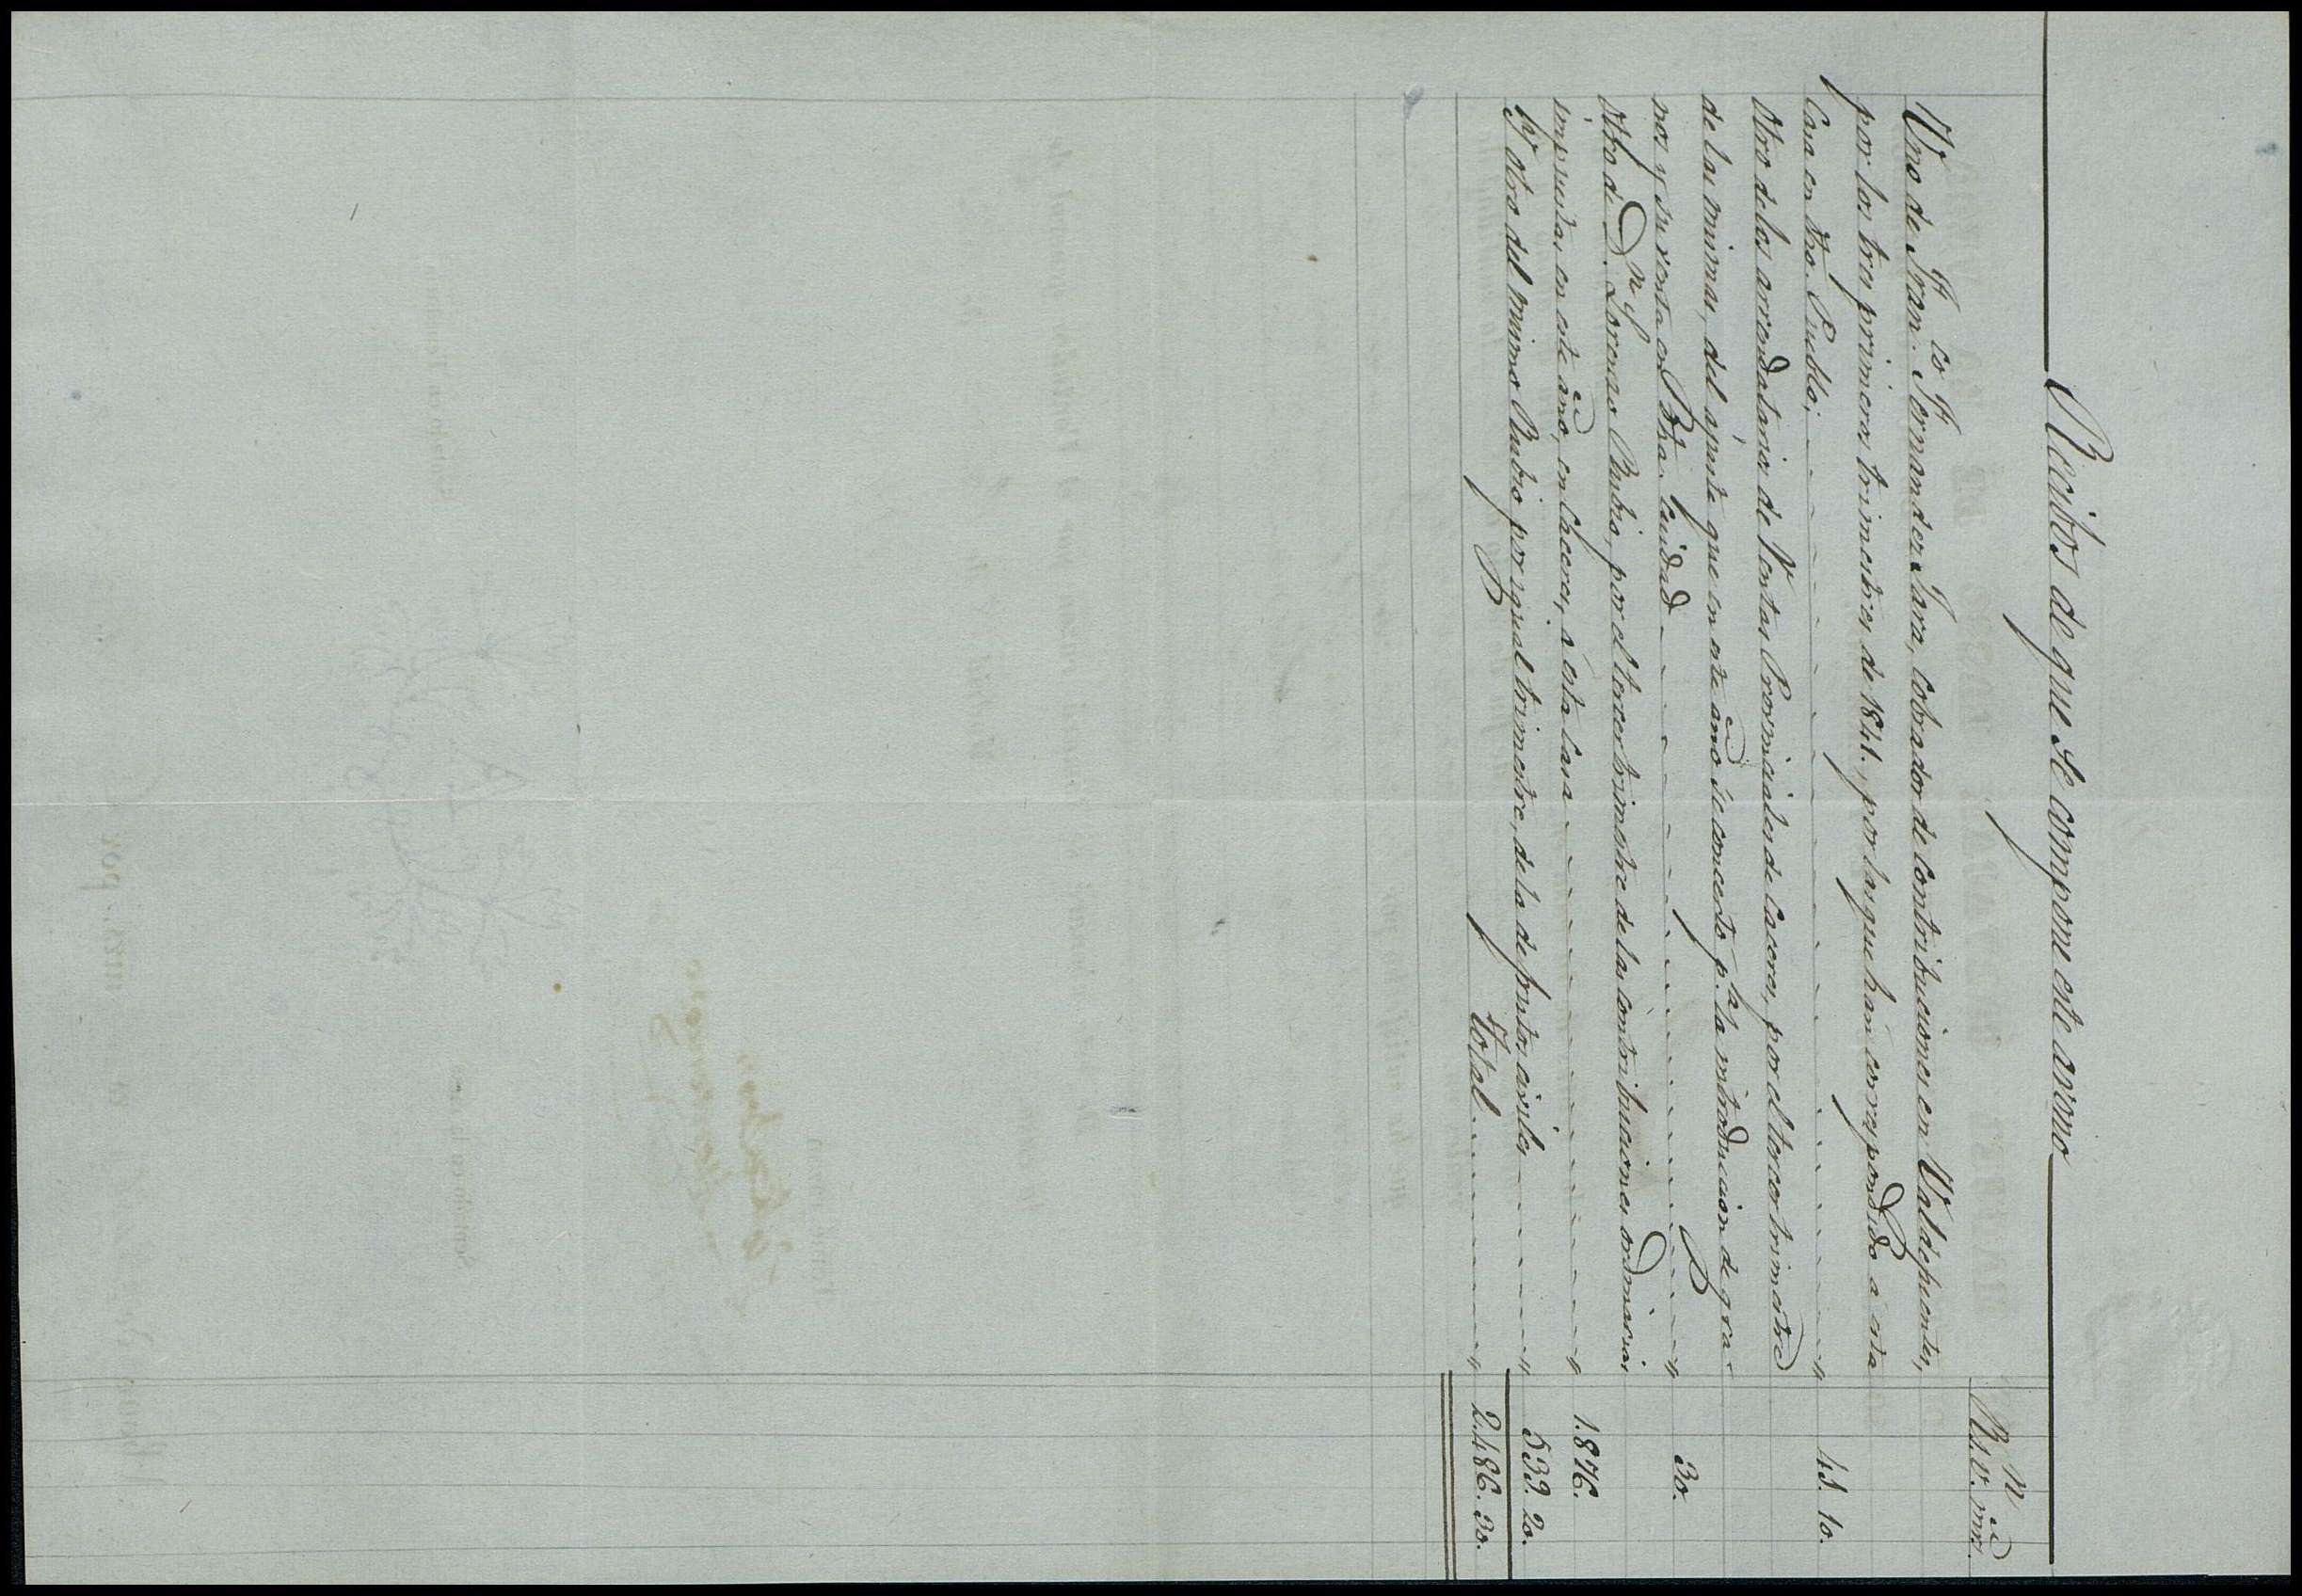 Recibos de que se compone este abono
Rs. vn. mrs.
Uno de Fran.co Fernandez Jara, cobrador de contribuciones en Valdefuentes,
por los tres primeros trimestres de 1841., por las que han correspondido a esta
Casa en dho. Pueblo; 41. 10.
Otro de los arrendatarios de Rentas Provinciales de Caceres, por el tercer trimestre
de las mismas, del ajuste que en este año se concertó p.a la introduccion de gra-
nos y su venta en dha. Ciudad 30.
Otro de D.n Lorenzo Rubio, por el tercer trimestre de las contribuciones ordinarias
impuestas en este año, en Caceres, á esta Casa 1.876.
Y otro del mismo Rubio por igual trimestre, de la de frutos civiles 539. 20.
Total 2.486. 30.